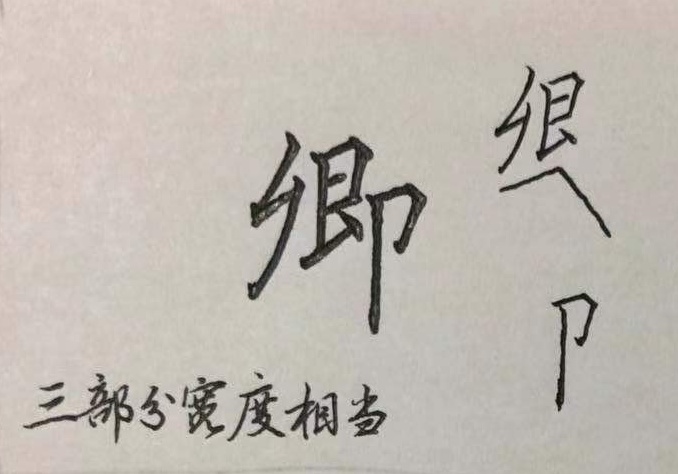 卿
三部分宽度相当